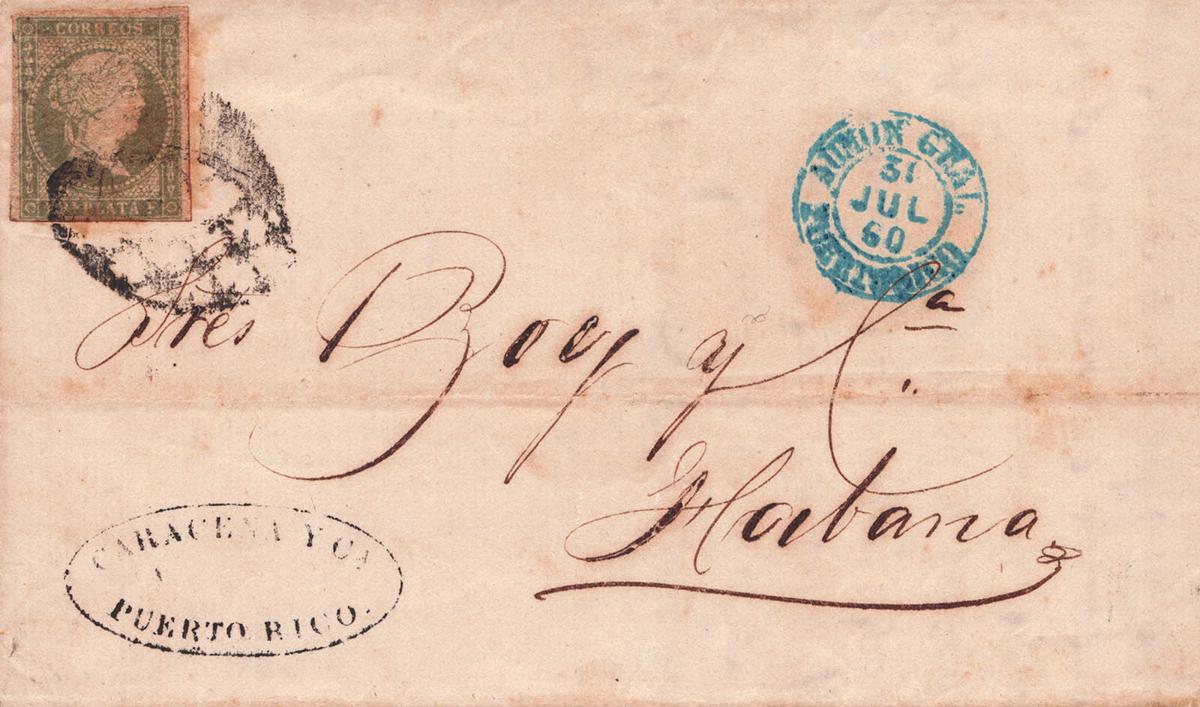 CORREOS
PLATA F
ADMON GRAL.
31
JUL
60
PUERTO-RICO
Sres Boey y Cª
Habana
CARACENA Y CA
PUERTO RICO.